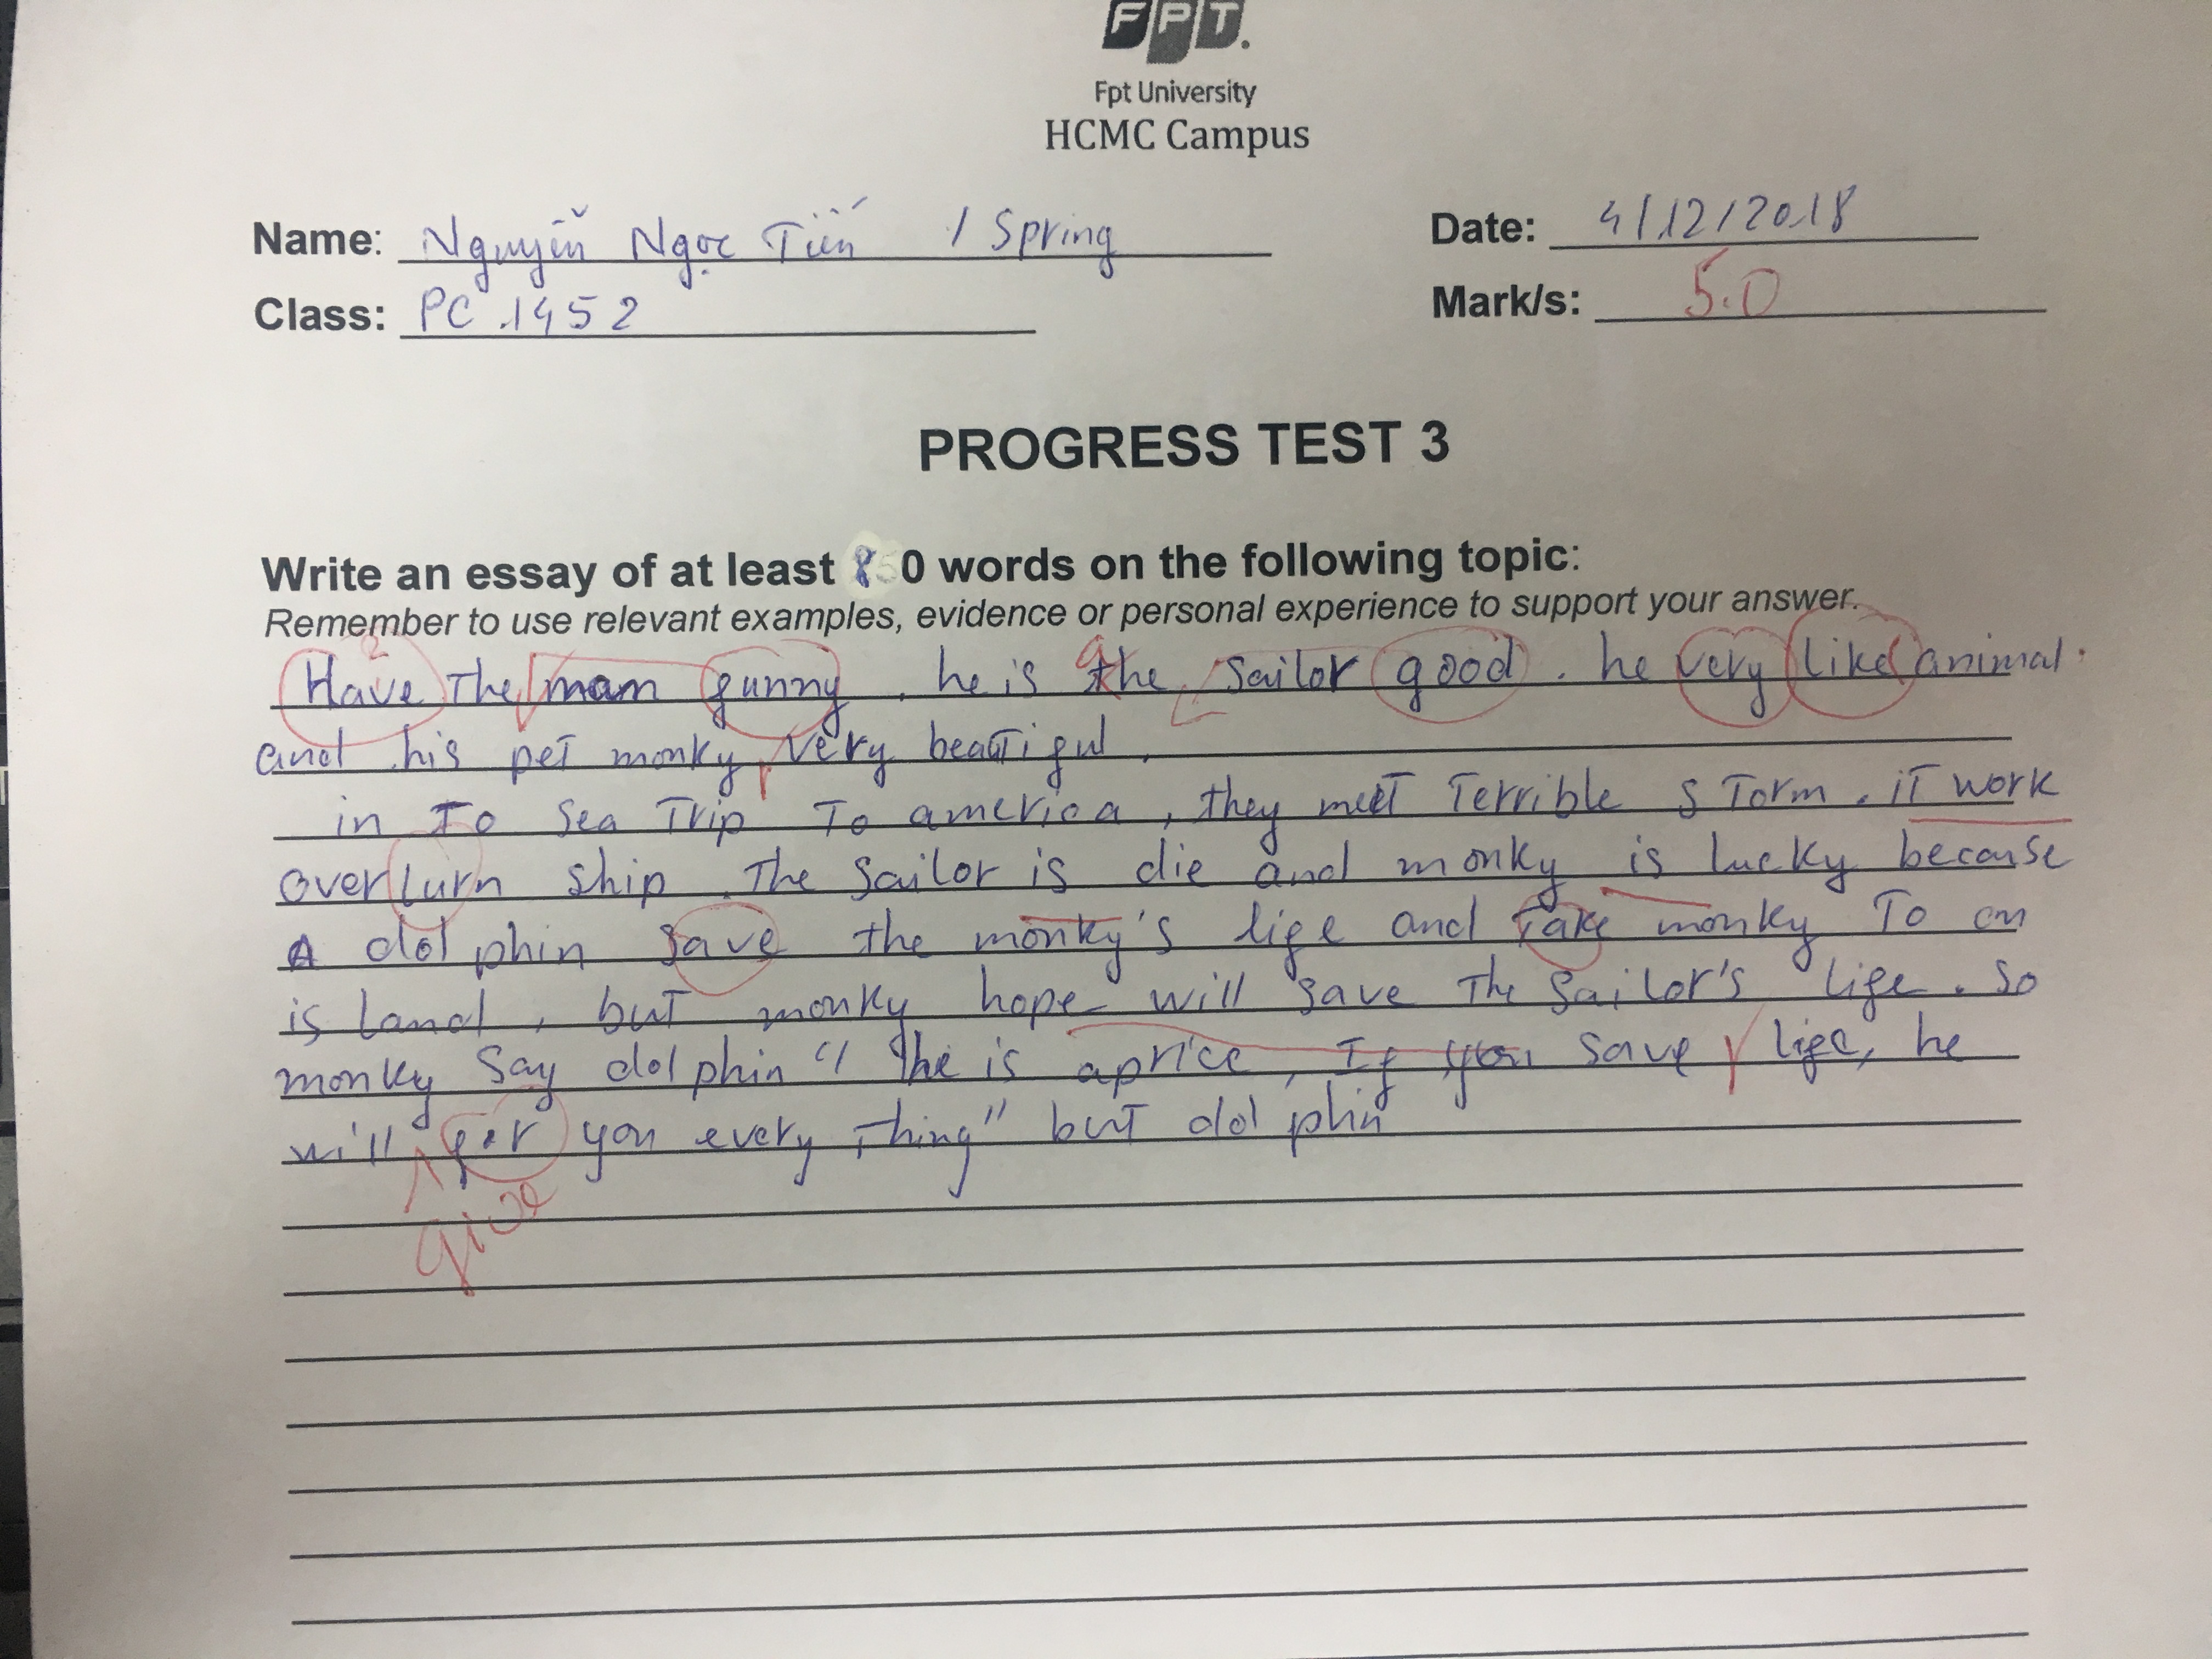 FPT.
Fpt University
HCMC Campus
Name: Nguyễn Ngọc Tiến / Spring
Date: 4/12/2018
Class: PC.1452
Mark/s: 5.0
PROGRESS TEST 3
Write an essay of at least 80 words on the following topic:
Remember to use relevant examples, evidence or personal experience to support your answer.
Have The man funny , he is the sailor good . he very like animal .
and his pet monky very beautiful .
in To Sea Trip To america , they meet Terrible sTorm . iT work
overlurn ship . The sailor is die and monky is lucky because
A dolphin save the monky's life and Take monky To an
island , buT monky hope will save The sailor's life . So
monky say dolphin " he is a price , If you save life, he
will for you every thing" buT dolphin
give